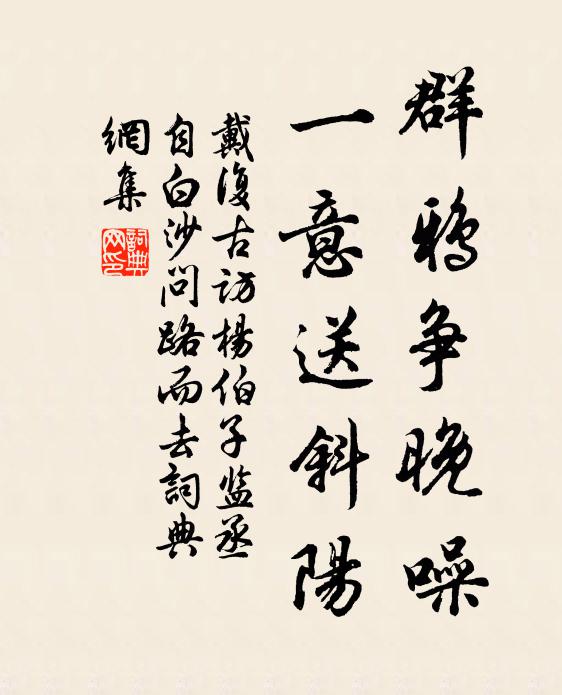 群鴉争晚噪
一意送斜陽
戴復古訪楊伯子监丞
自白沙问路而去詞典
網集
詞典
网印